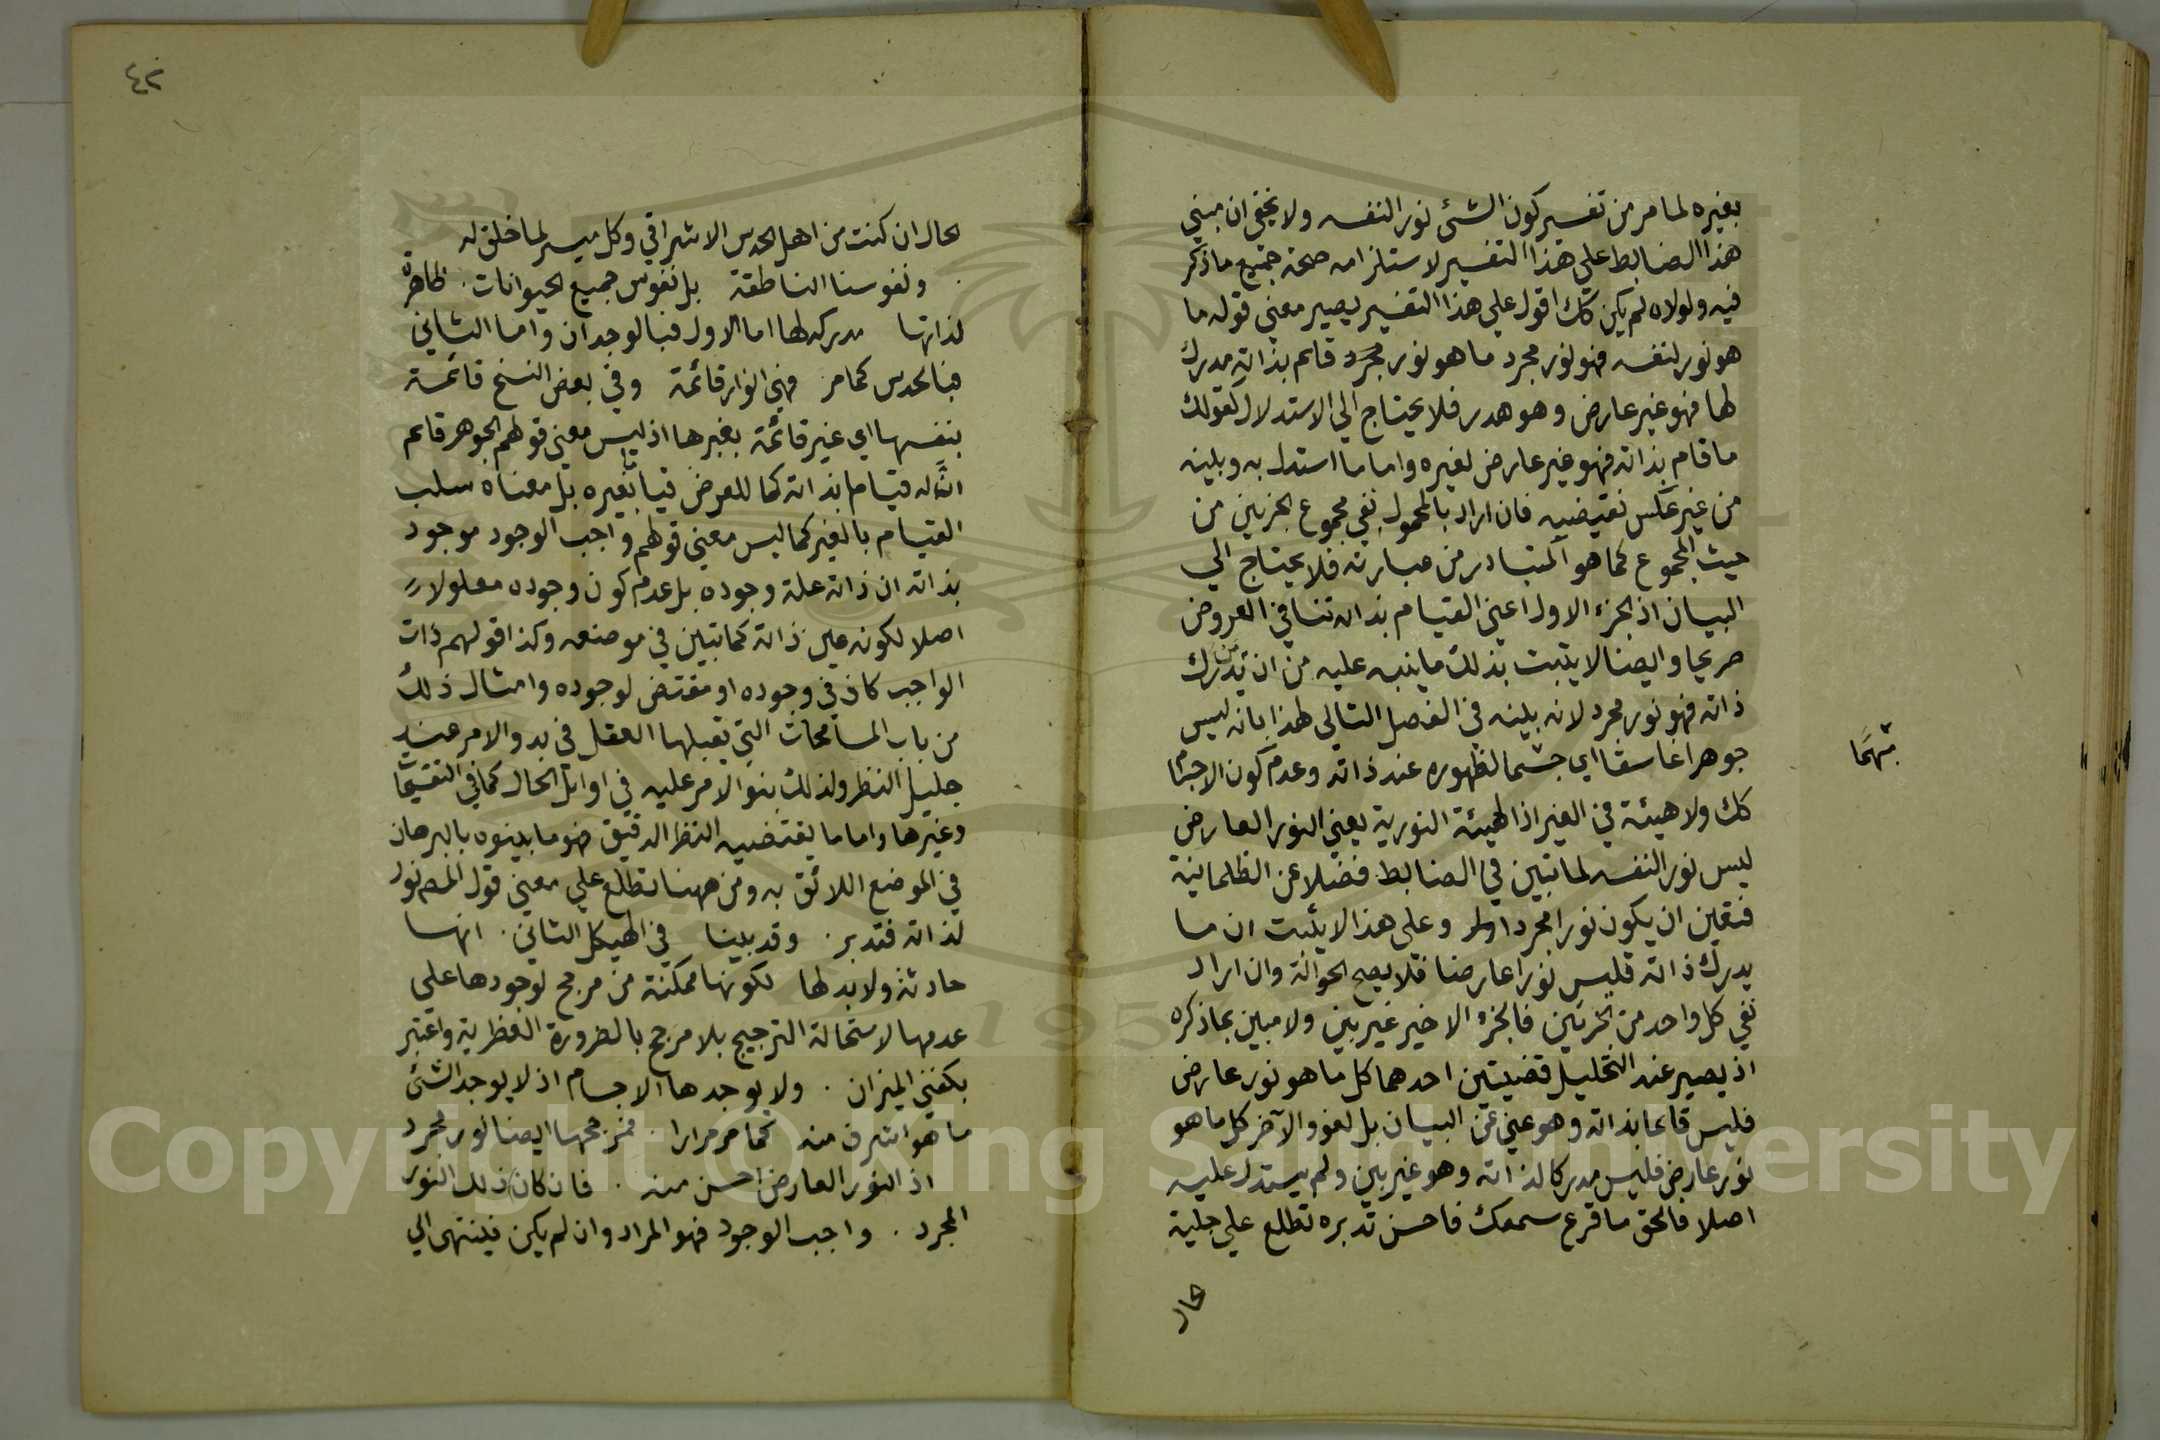 بغيره لما مر من تفسير كون الشئ نورا لنفسه ولا يخفى ان مبني
هذا الضابط على هذا التفسير لاستلزامه صحة جميع ما ذكر
فيه ولولاه لم يكن كك اقول على هذا التفسير يصير معني قوله ما
هو نور لنفسه فهو نور مجرد ما هو نور مجرد قائم بذاته مدرك
لها فهو غير عارض وهو هدر فلا يحتاج الي الاستدلال كقولك
ما قام بذاته فهو غير عارض لغيره واما ما استدل به وبينه
من غير عكس نقيضيه فان اراد بالمحمول نفي مجموع الجزئين من
حيث المجموع كما هو المتبادر من عبارته فلا يحتاج الي
البيان اذ الجزء الاول اعني القيام بذاته تنافي العروض
صريحا وايضا لا يثبت بذلك ما ينبه عليه من ان من يدرك
ذاته فهو نور مجرد لانه بينه في الفصل التالي لهذا بانه ليس
جوهرا غاسقا اي جسما لظهوره عند ذاته وعدم كون الاجسام
كك ولا هيئة في الغير اذ الهيئة النورية يعني النور العارض
ليس نورا لنفسه لما تبين في الضابط فضلا عن الظلمانية
فتعين ان يكون نورا مجردا وعلى هذا لا يثبت ان ما
يدرك ذاته فليس نورا عارضا فلا يصح الحوالة وان اراد
نفي كل واحد من الجزئين فالجزؤ الاخير غير بين ولا مبين بما ذكره
اذ يصير عند التحليل قضيتين احدهما كل ما هو نور عارض
فليس قائما بذاته وهو غني عن البيان بل لغو والآخر كل ما هو
نور عارض فليس مدركا لذاته وهو غير بين ولم يستدل عليه
اصلا فالحق ما قرع سمعك فاحسن تدبره تطلع على جلية
الحال ان كنت من اهل الحدس الاشراقي وكل ميسر لما خلق له
ونفوسنا الناطقة بل نفوس جميع الحيوانات ظاهرة
لذاتها مدركة لها اما الاول فبالوجدان واما الثاني
فبالحدس كما مر فهي انوار قائمة وفي بعض النسخ قائمة
بنفسها اي غير قائمة بغيرها اذ ليس معني قولهم الجوهر قائم
انه له قيام بذاته كما للعرض قياما بغيره بل معناه سلب
القيام بالغير كما ليس معني قولهم واجب الوجود موجود
بذاته ان ذاته علة وجوده بل عدم كون وجوده معلولا
اصلا لكونه عين ذاته كما تبين في موضعه وكذا قولهم ذات
الواجب كاف في وجوده او مقتض لوجوده وامثال ذلك
من باب المسامحات التي تقبلها العقل في بدو الامر عند
جليل النظر ولذلك بنوا الامر عليه في اوائل الحال كما في التقسيمات
وغيرها واما ما يقتضيه النظر الدقيق فهو ما بينوه بالبرهان
في الموضع اللائق به ومن ههنا تطلع علي معني قول المص نور
لذاته فتدبر وقد بينا في الهيكل الثاني انها
حادثة ولا بد لها لكونها ممكنة من مرجح لوجودها على
عدمها لاستحالة الترجيح بلا مرجح بالضرورة الفطرية واعتبر
بكفتي الميزان ولا يوجدها الاجسام اذ لا يوجد الشئ
ما هو اشرف منه كما مر مرارا فمرجحها ايضا نور مجرد
اذ النور العارض اخس منه فان كان ذلك النور
المجرد واجب الوجود فهو المراد وان لم يكن فينتهي الي